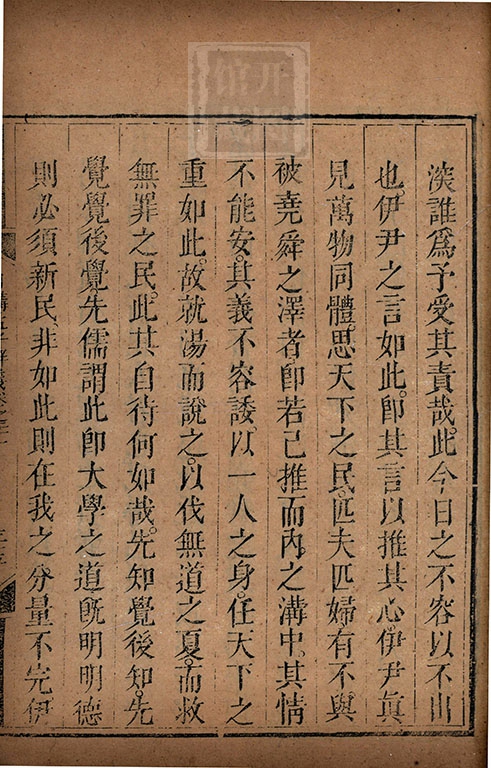 淡誰爲予受其責哉。此今日之不容以不出
也。伊尹之言如此。卽其言以推其心。伊尹眞
見萬物同體。思天下之民。匹夫匹婦有不與
被堯舜之澤者卽若己推而內之溝中。其情
不能安。其義不容諉。以一人之身。任天下之
重如此。故就湯而說之。以伐無道之夏。而救
無罪之民。此其自待何如哉。先知覺後知。先
覺覺後覺。先儒謂此卽大學之道旣明明德
則必須新民。非如此則在我之分量不完伊